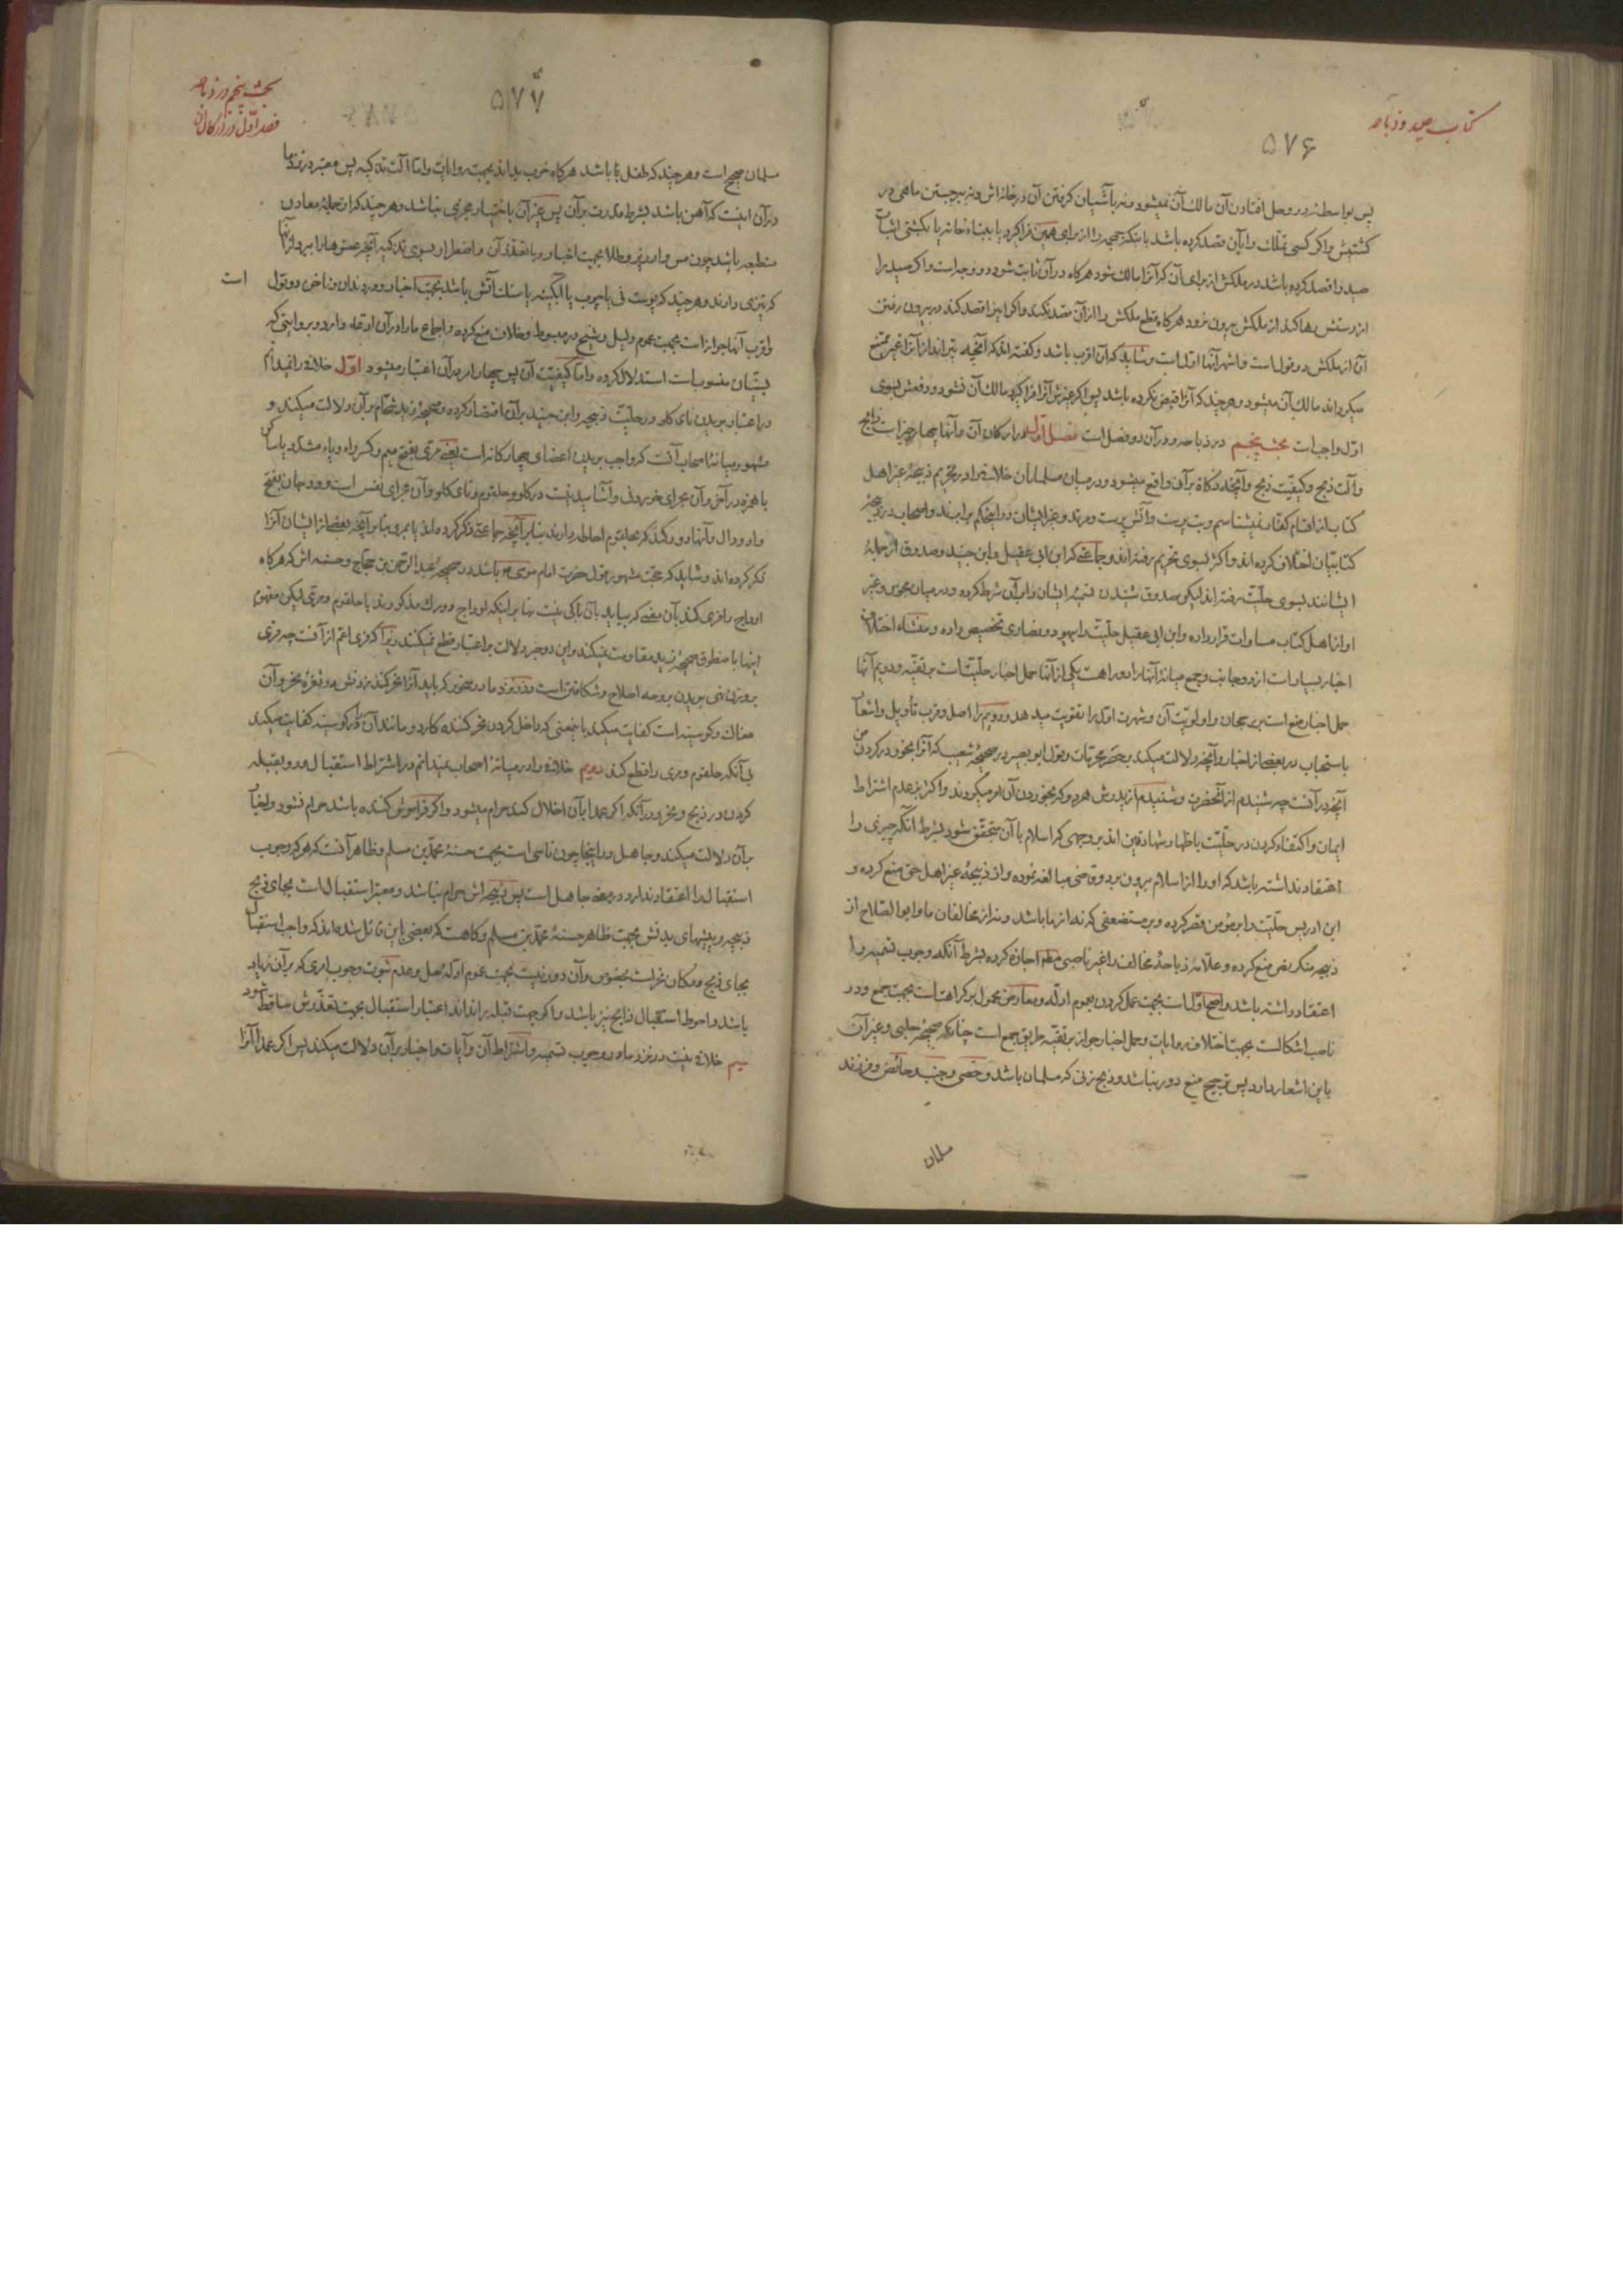 کتاب صید و ذباحه
۵۷۶
پس بواسطهٔ در وحل افتادن آن مالک آن نمیشود و نه بآشیان کرفتن آن در خانه‌اش و نه ببرجستن ماهی در
کشتیش و اکر کسی تملک را بآن قصد کرده باشد باینکه را از برای همین فرا کیرد یا ببناء خانه یا بکشتی اثبات
صید را قصد کرده باشد در ملکش از برای آن که آنرا مالک شود هرکاه در آن ثابت شود دو وجه است و اکر صید را
از دستش رها کند از ملکش بیرون نرود هرکاه قطع ملکش را از آن قصد نکند و اکر اینرا قصد کند در بیرون رفتن
آن از ملکش دو قول است و اشهر آنها اول است و شاید که آن اقرب باشد و کفته‌اند که آنچه تیرانداز آنرا غیر ممتنع
میکرداند مالک آن میشود و هرچند که آنرا قبض نکرده باشد پس اکر غیرش آنرا فرا کیرد مالک آن نشود و دفعش بسوی
اول واجب است بحث پنجم در ذباحه و در آن دو فصل است فصل اول در ارکان آن و آنها چهار چیز است ذابح
و آلت ذبح و کیفیت ذبح و آنچه ذکاة بر آن واقع میشود و در میان مسلمانان خلاف را در تحریم ذبیحهٔ غیر اهل
کتاب از اقسام کفار نمیشناسم و بت پرست و آتش پرست و مرتد و غیر ایشان در اینحکم برابرند و اصحاب در ذبیحهٔ
کتابیان اختلاف کرده‌اند و اکثر بسوی تحریم رفته‌اند و جماعتی که ابن ابی عقیل و ابن جنید و صدوق از جملهٔ
ایشانند بسوی حلیت رفته‌اند لیکن صدوق شنیدن تسمیهٔ ایشان را بر آن شرط کرده و در میان مجوس و غیر
او از اهل کتاب مساوات قرار داده و ابن ابی عقیل حلیت را بیهود و نصاری تخصیص داده و منشاء اختلاف
اخبار بسیار است از دو جانب و جمع میانهٔ آنها را دو راهست یکی از آنها حمل اخبار حلیت است بر تقیه و دویم آنها
حمل اخبار منع است بر رجحان و اولویت آن و شهرت اول را تقویت میدهد و دویم را اصل و قرب تأویل و اشعار
باستحباب در بعضی از اخبار و آنچه دلالت میکند بحصر محرمات و قول ابو بصیر در صحیحهٔ شعیب که آنرا بخور در کردن من
آنچه در آنست چه شنیدم از آنحضرت و شنیدم از پدرش هر دو که بخوردن آن امر میکردند و اکثر بر عدم اشتراط
ایمان و اکتفاء کردن در حلیت باظهار شهادتین‌اند بر وجهی که اسلام با آن متحقق شود بشرط آنکه چیزی را
اعتقاد نداشته باشد که او را از اسلام بیرون برد و قاضی مبالغه نموده و از ذبیحهٔ غیر اهل حق منع کرده و
ابن ادریس حلیت را بر مؤمن قصر کرده و بر مستضعفی که نه از ما باشد و نه از مخالفان ما و ابو الصلاح از
ذبیحهٔ منکر نص منع کرده و علامه ذباحهٔ مخالف را غیر ناصبی مطلقا اجازه کرده بشرط آنکه وجوب تسمیه را
اعتقاد داشته باشد و اصح اول است بجهت عمل کردن بعموم ادله و معارض محمول بر کراهت است بجهت جمع و در
ناصب اشکالست بجهت اختلاف روایات و حمل اخبار جواز بر تقیه طریق جمع است چنانکه صحیحهٔ حلبی و غیر آن
باین اشعار دارد پس ترجیح منع دور نباشد و ذبح زنی که مسلمان باشد و خصی و جنب و حائض و فرزند
مسلمان
بحث پنجم در ذباحه
فصل اول در ارکان آن
۵۷۷
مسلمان صحیح است و هرچند که طفل باشد هرکاه خوب بداند بجهت روایات و اما آلت تذکیه پس معتبر در نزد ما
در آن اینست که آهن باشد بشرط قدرت بر آن پس غیر آن باختیار مجزی نباشد و هرچند که از جملهٔ معادن
منطبعه باشد چون مس و ارزیز و طلا بجهت اخبار و با تعذر آن و اضطرار بسوی تذکیه آنچه عضوها را ببرد از آنها
که تیزی دارند و هرچند که پوست نی یا چوب یا آبکینه یا سنک آتش باشد بجهت اخبار و در دندان و ناخن دو قول است
و اقرب آنها جواز است بجهت عموم دلیل و شیخ در مبسوط و خلاف منع کرده و اجماع ما را در آن ادعاء دارد و بروایتی که
بسنیان منسوب است استدلال کرده و اما کیفیت آن پس چهار امر در آن اعتبار میشود اول خلاف را نمیدانم
در اعتبار بریدن نای کلو در حلیت ذبیحه و ابن جنید بر آن اقتصار کرده و صحیحهٔ زید شحام بر آن دلالت میکند و
مشهور میانهٔ اصحاب آنست که واجب بریدن اعضای چهارکانه است یعنی مری بفتح میم و کسر راء و یاء مشدد یا ساکن
با همزه در آخر و آن مجرای خوردنی و آشامیدنیست در کلو و حلقوم و نای کلو و آن مجرای نفس است و ودجان بفتح
واو و دال و آنها دو رکند که بحلقوم احاطه دارند بنا بر آنچه جماعتی ذکر کرده‌اند یا بمری بنا بر آنچه بعضی از ایشان آنرا
ذکر کرده‌اند و شاید که حجت مشهور قول حضرت امام موسی باشد در صحیحهٔ عبد الرحمن بن حجاج و حسنه‌اش که هرکاه
اوداج را فری کند بآن مفهمی که بیاید بآن باکی نیست بنا بر اینکه اوداج دو رک مذکورند با حلقوم و مری لیکن مفهوم
اینها با منطوق صحیحهٔ زید مقاومت نمیکند و این دو خبر دلالت بر اعتبار قطع نمیکنند زیرا که فری اعم از آنست چه فری
بر وزن رمی بریدن بر وجه اصلاح و شکافتن است و در نزد ما در نحر که باید آنرا نحر کند زدنش در ثغرهٔ نحر و آن
مغاک و کو سینه است کفایت میکند باینمعنی که داخل کردن نحر کننده کارد و مانند آن را در کو سینه کفایت میکند
بی آنکه حلقوم و مری را قطع کند دویم خلاف را در میانهٔ اصحاب نمیدانم در اشتراط استقبال و رو بقبله
کردن در ذبح و نحر و در آنکه اکر عمدا بآن اخلال کند حرام میشود و اکر فراموش کننده باشد حرام نشود و اخبار
بر آن دلالت میکند و جاهل در اینجا چون ناسی است بجهت حسنهٔ محمد بن مسلم و ظاهر آنست که هر که وجوب
استقبال را اعتقاد ندارد در معنی جاهل است پس ذبیحه‌اش حرام نباشد و معتبر استقبال است بجای ذبح
ذبیحه و پیشهای بدنش بجهت ظاهر حسنهٔ محمد بن مسلم و کاهست که بعضی باین قائل شده‌اند که واجب استقبال
بجای ذبح و مکان نحر است بخصوص و آن دور نیست بجهت عموم ادلهٔ حل و عدم ثبوت وجوب امری که بر آن زیاد
باشد و احوط استقبال ذابح نیز باشد و اکر جهت قبله را نداند اعتبار استقبال بجهت تعذرش ساقط شود
سیم خلاف نیست در نزد ما در وجوب تسمیه و اشتراط آن و آیات و اخبار بر آن دلالت میکند پس اکر عمدا آنرا